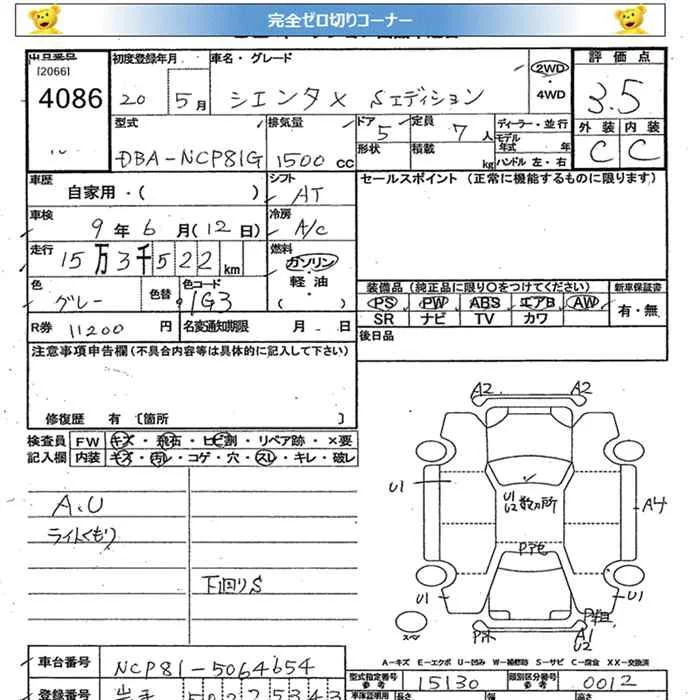 完全ゼロ切りコーナー
出品番号 初度登録年月 車名・グレード 評価点
[2066]
4086 20 5月 シエンタX Sエディション 2WD・4WD 3.5
型式 排気量 ドア 定員 ディーラー・並行 外装 内装
DBA-NCP81G 1500cc 5 7人 モデル年式 年 C C
形状 積載 kg ハンドル 左・右
車歴 シフト セールスポイント (正常に機能するものに限ります)
自家用・( ) AT
車検 冷房
9年6月(12日) A/C
走行 燃料
15万3千522km ガソリン
軽油
( )
色 色替 色コード 装備品(純正品に限り○をつけてください) 新車保証書
グレー 1G3 PS PW ABS エアB AW 有・無
SR ナビ TV カワ
R券 11200円 名変通知期限 月 日 後日品
注意事項申告欄(不具合内容等は具体的に記入して下さい)
修復歴 有 〔箇所 〕
検査員 FW キズ・飛石・ヒビ割・リペア跡・×要
記入欄 内装 キズ・汚レ・コゲ・穴・スレ・キレ・破レ
A、U
ライトくもり
下回りS
A2 A2
U1 U1
U2 数カ所 A4
U1 U1
A1
U2
スペ
A-キズ E-エクボ U-凹み W-補修跡 S-サビ C-腐食 XX-交換済
車台番号 NCP81-5064654 型式指定番号 参考 15130 類別区分番号 参考 0012
登録番号 長さ 幅 高さ